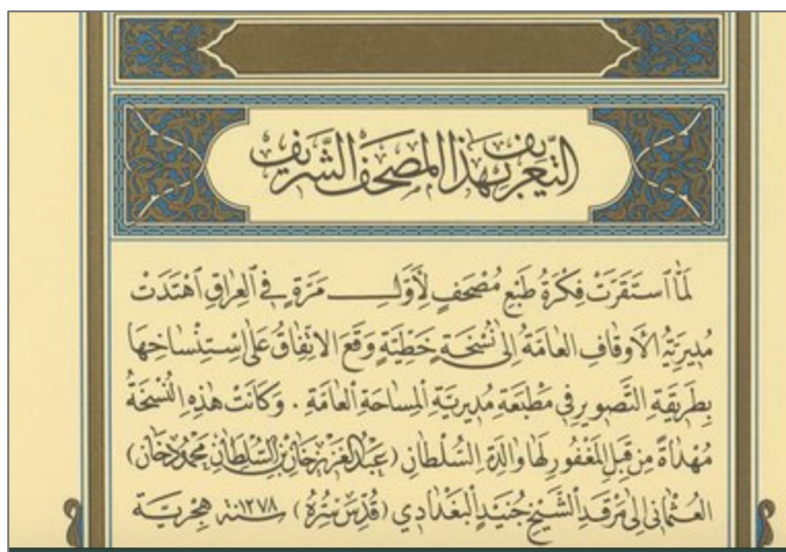 التَّعْرِيفُ بِهَذَا الْمُصْحَفِ الشَّرِيفِ
لَمَّا اسْتَقَرَّتْ فِكْرَةُ طَبْعِ مُصْحَفٍ لِأَوَّلِ مَرَّةٍ فِي الْعِرَاقِ اهْتَدَتْ
مُدِيرِيَّةُ الْأَوْقَافِ الْعَامَّةُ إِلَى نُسْخَةٍ خَطِّيَّةٍ وَقَعَ الِاتِّفَاقُ عَلَى اسْتِنْسَاخِهَا
بِطَرِيقَةِ التَّصْوِيرِ فِي مَطْبَعَةِ مُدِيرِيَّةِ الْمِسَاحَةِ الْعَامَّةِ . وَكَانَتْ هٰذِهِ النُّسْخَةُ
مُهْدَاةً مِنْ قِبَلِ الْمَغْفُورِ لَهَا وَالِدَةِ السُّلْطَانِ (عَبْدُ الْعَزِيزْ خَانْ بْنِ السُّلْطَانِ مَحْمُودْ خَانْ)
الْعُثْمَانِي إِلَى مَرْقَدِ الشَّيْخِ جُنَيْدِ الْبَغْدَادِي (قُدِّسَ سِرُّهُ) سَنَة ١٢٧٨ هِجْرِيَّة